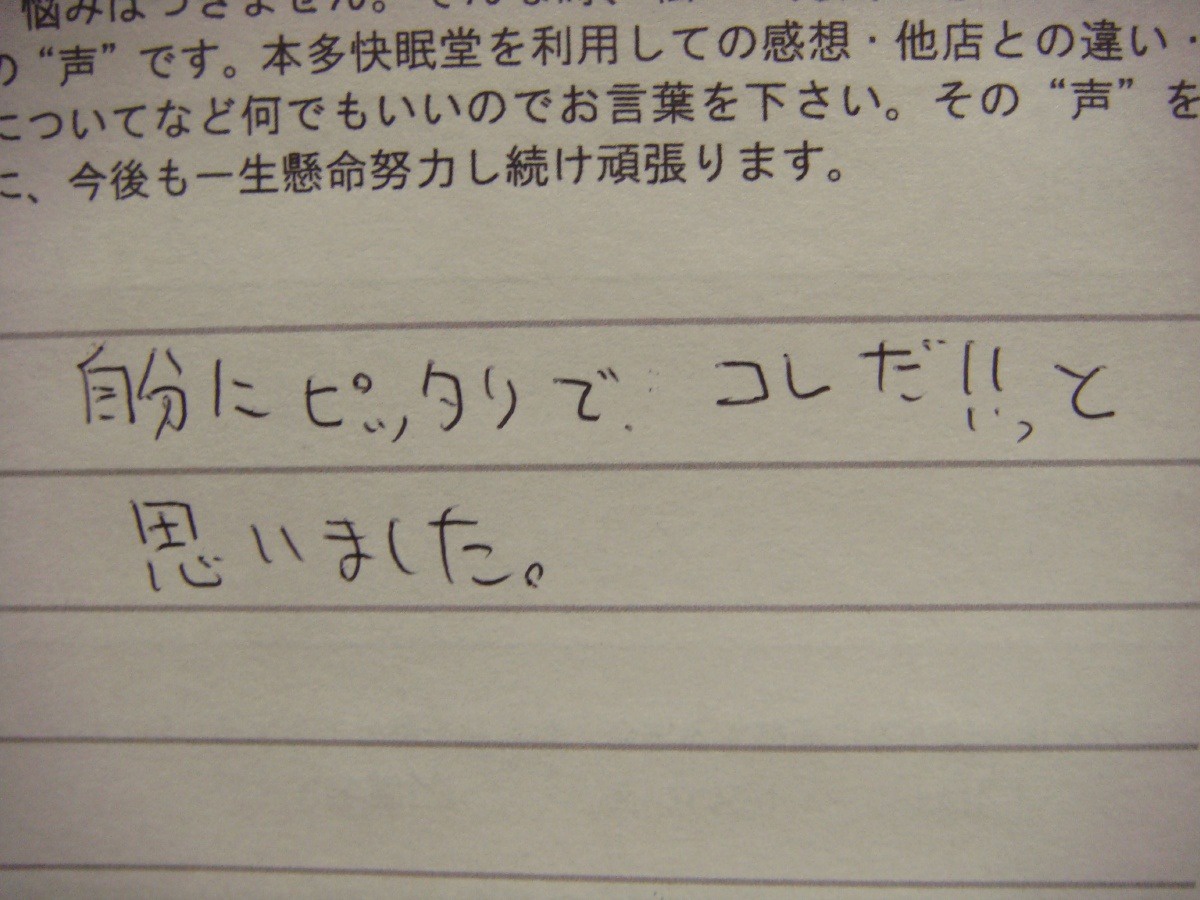 悩みはつきません。そんな時、
の“声”です。本多快眠堂を利用しての感想・他店との違い・
についてなど何でもいいのでお言葉を下さい。その“声”を
に、今後も一生懸命努力し続け頑張ります。
自分にピッタリで コレだ!!っと
思いました。